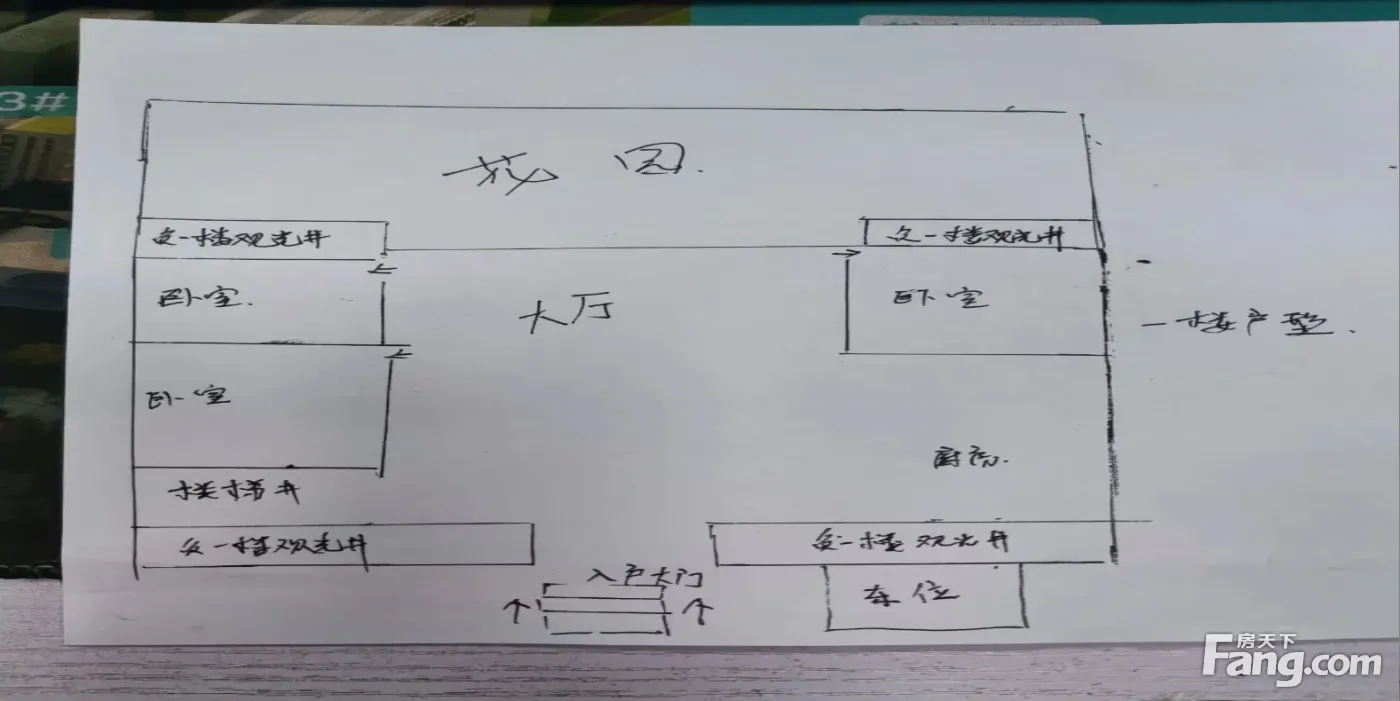 3#
花园.
负一楼观光井
负一楼观光井
卧室.
大厅
卧室
一楼户型.
卧室
厨房.
楼梯井
负一楼观光井
负一楼观光井
入户大门
车位
房天下
Fang.com